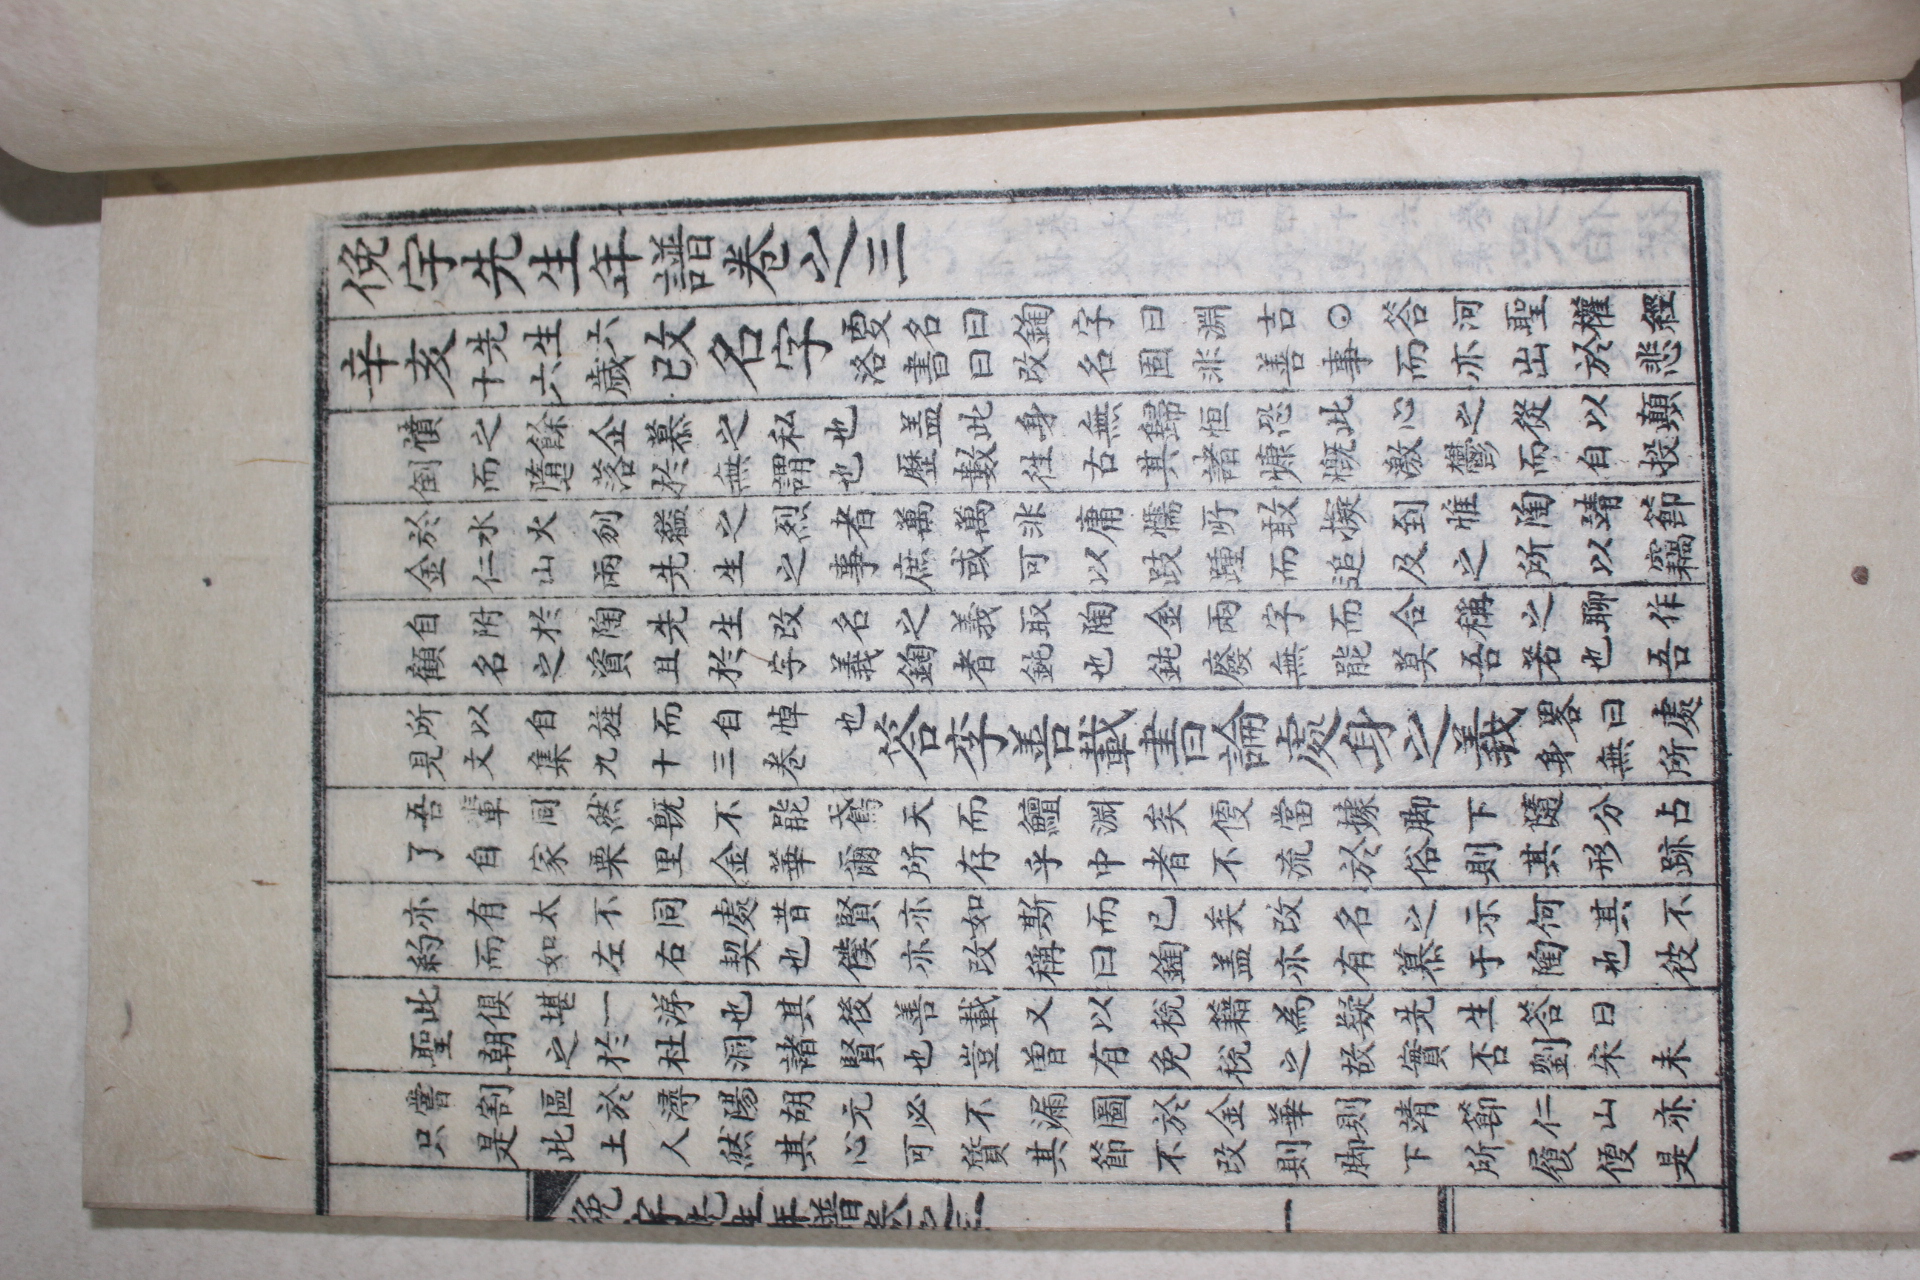 俛宇先生年譜卷之三
辛亥
先生六
十六歲
改名字
更名曰鋾字曰淵吉○答河聖權經
洛書曰改名固非善事而亦出於悲
憤之餘企慕之私也盖此身無歸恒恐此心之從以顛
倒而墮落於無謂也歷數徃古其諸慷慨激鬱而自投
於水火刎縊之烈者萬萬非庸懦所敢擬到惟陶靖節
金仁山兩先生之事庶或可以跂踵而追及之所以竊
自附於陶先生改名之義取陶金兩字而合稱之聊作
顧名之資且於字義鋾者鈍也鈍廢無能莫吾若也吾
所以自旌而自悼也
見文集九十三卷
答李善載書論處身之義
畧曰處
身無所
吾輩同然旣不能鳶天而鱣淵矣便當據脚下隨分占
了自家栗里金華爾所存乎中者不流於俗則其形跡
亦有太不同處昔賢亦如斯而已矣改名之示何其不
約而如左右契也僕亦改稱曰鋾盖亦有慕于陶也彼
此俱堪一涕也其後善載又以稅籍為疑先生答曰
聖朝之於杜洞諸賢也豈曾有免稅之故實否劉宋未
嘗割區於潯陽胡元必不漏圖於金華則靖節仁山亦
只是此土人然其心可質其節不改則脚下所履便是
俛宇先生年譜卷之三
一